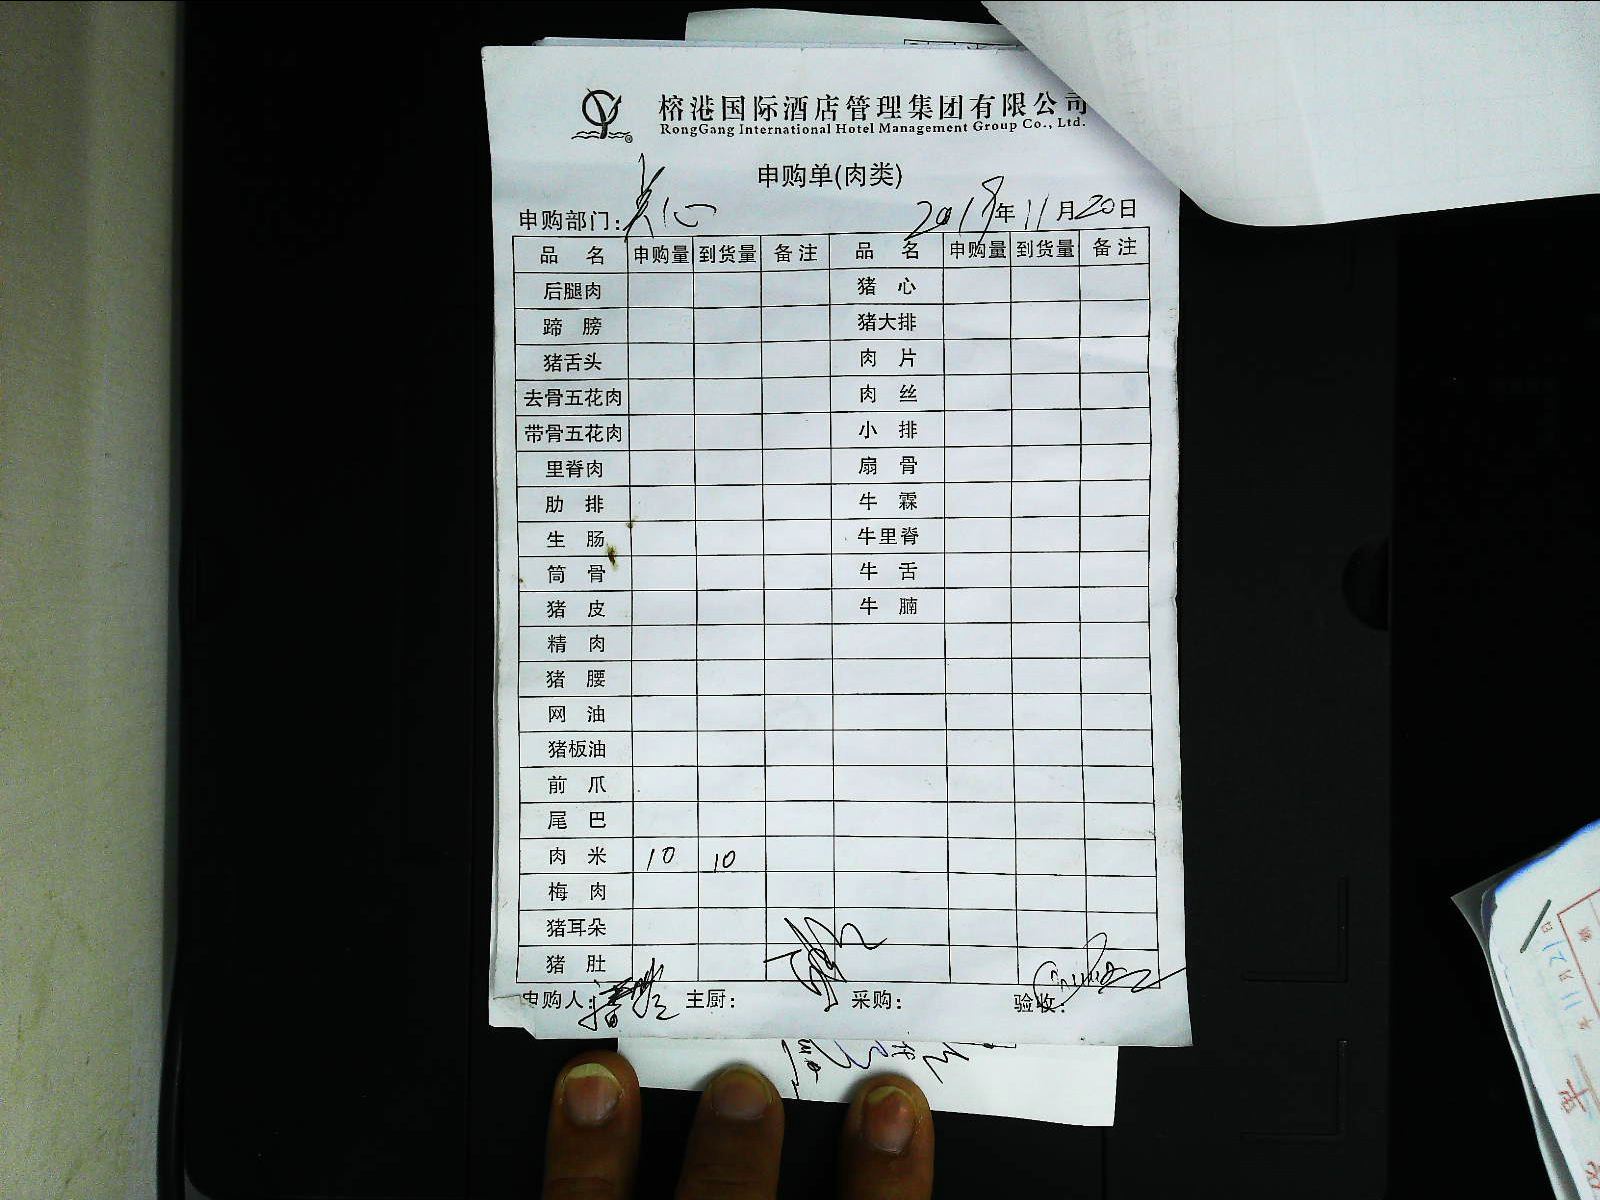 榕港国际酒店管理集团有限公司
RongGang International Hotel Management Group Co., Ltd.
申购单(肉类)
申购部门: 点心 2018年11月20日
品 名 申购量 到货量 备注 品 名 申购量 到货量 备注
后腿肉 猪 心
蹄 膀 猪大排
猪舌头 肉 片
去骨五花肉 肉 丝
带骨五花肉 小 排
里脊肉 扇 骨
肋 排 牛 霖
生 肠 牛里脊
筒 骨 牛 舌
猪 皮 牛 腩
精 肉
猪 腰
网 油
猪板油
前 爪
尾 巴
肉 米 10 10
梅 肉
猪耳朵
猪 肚
申购人: 主厨: 采购: 验收: